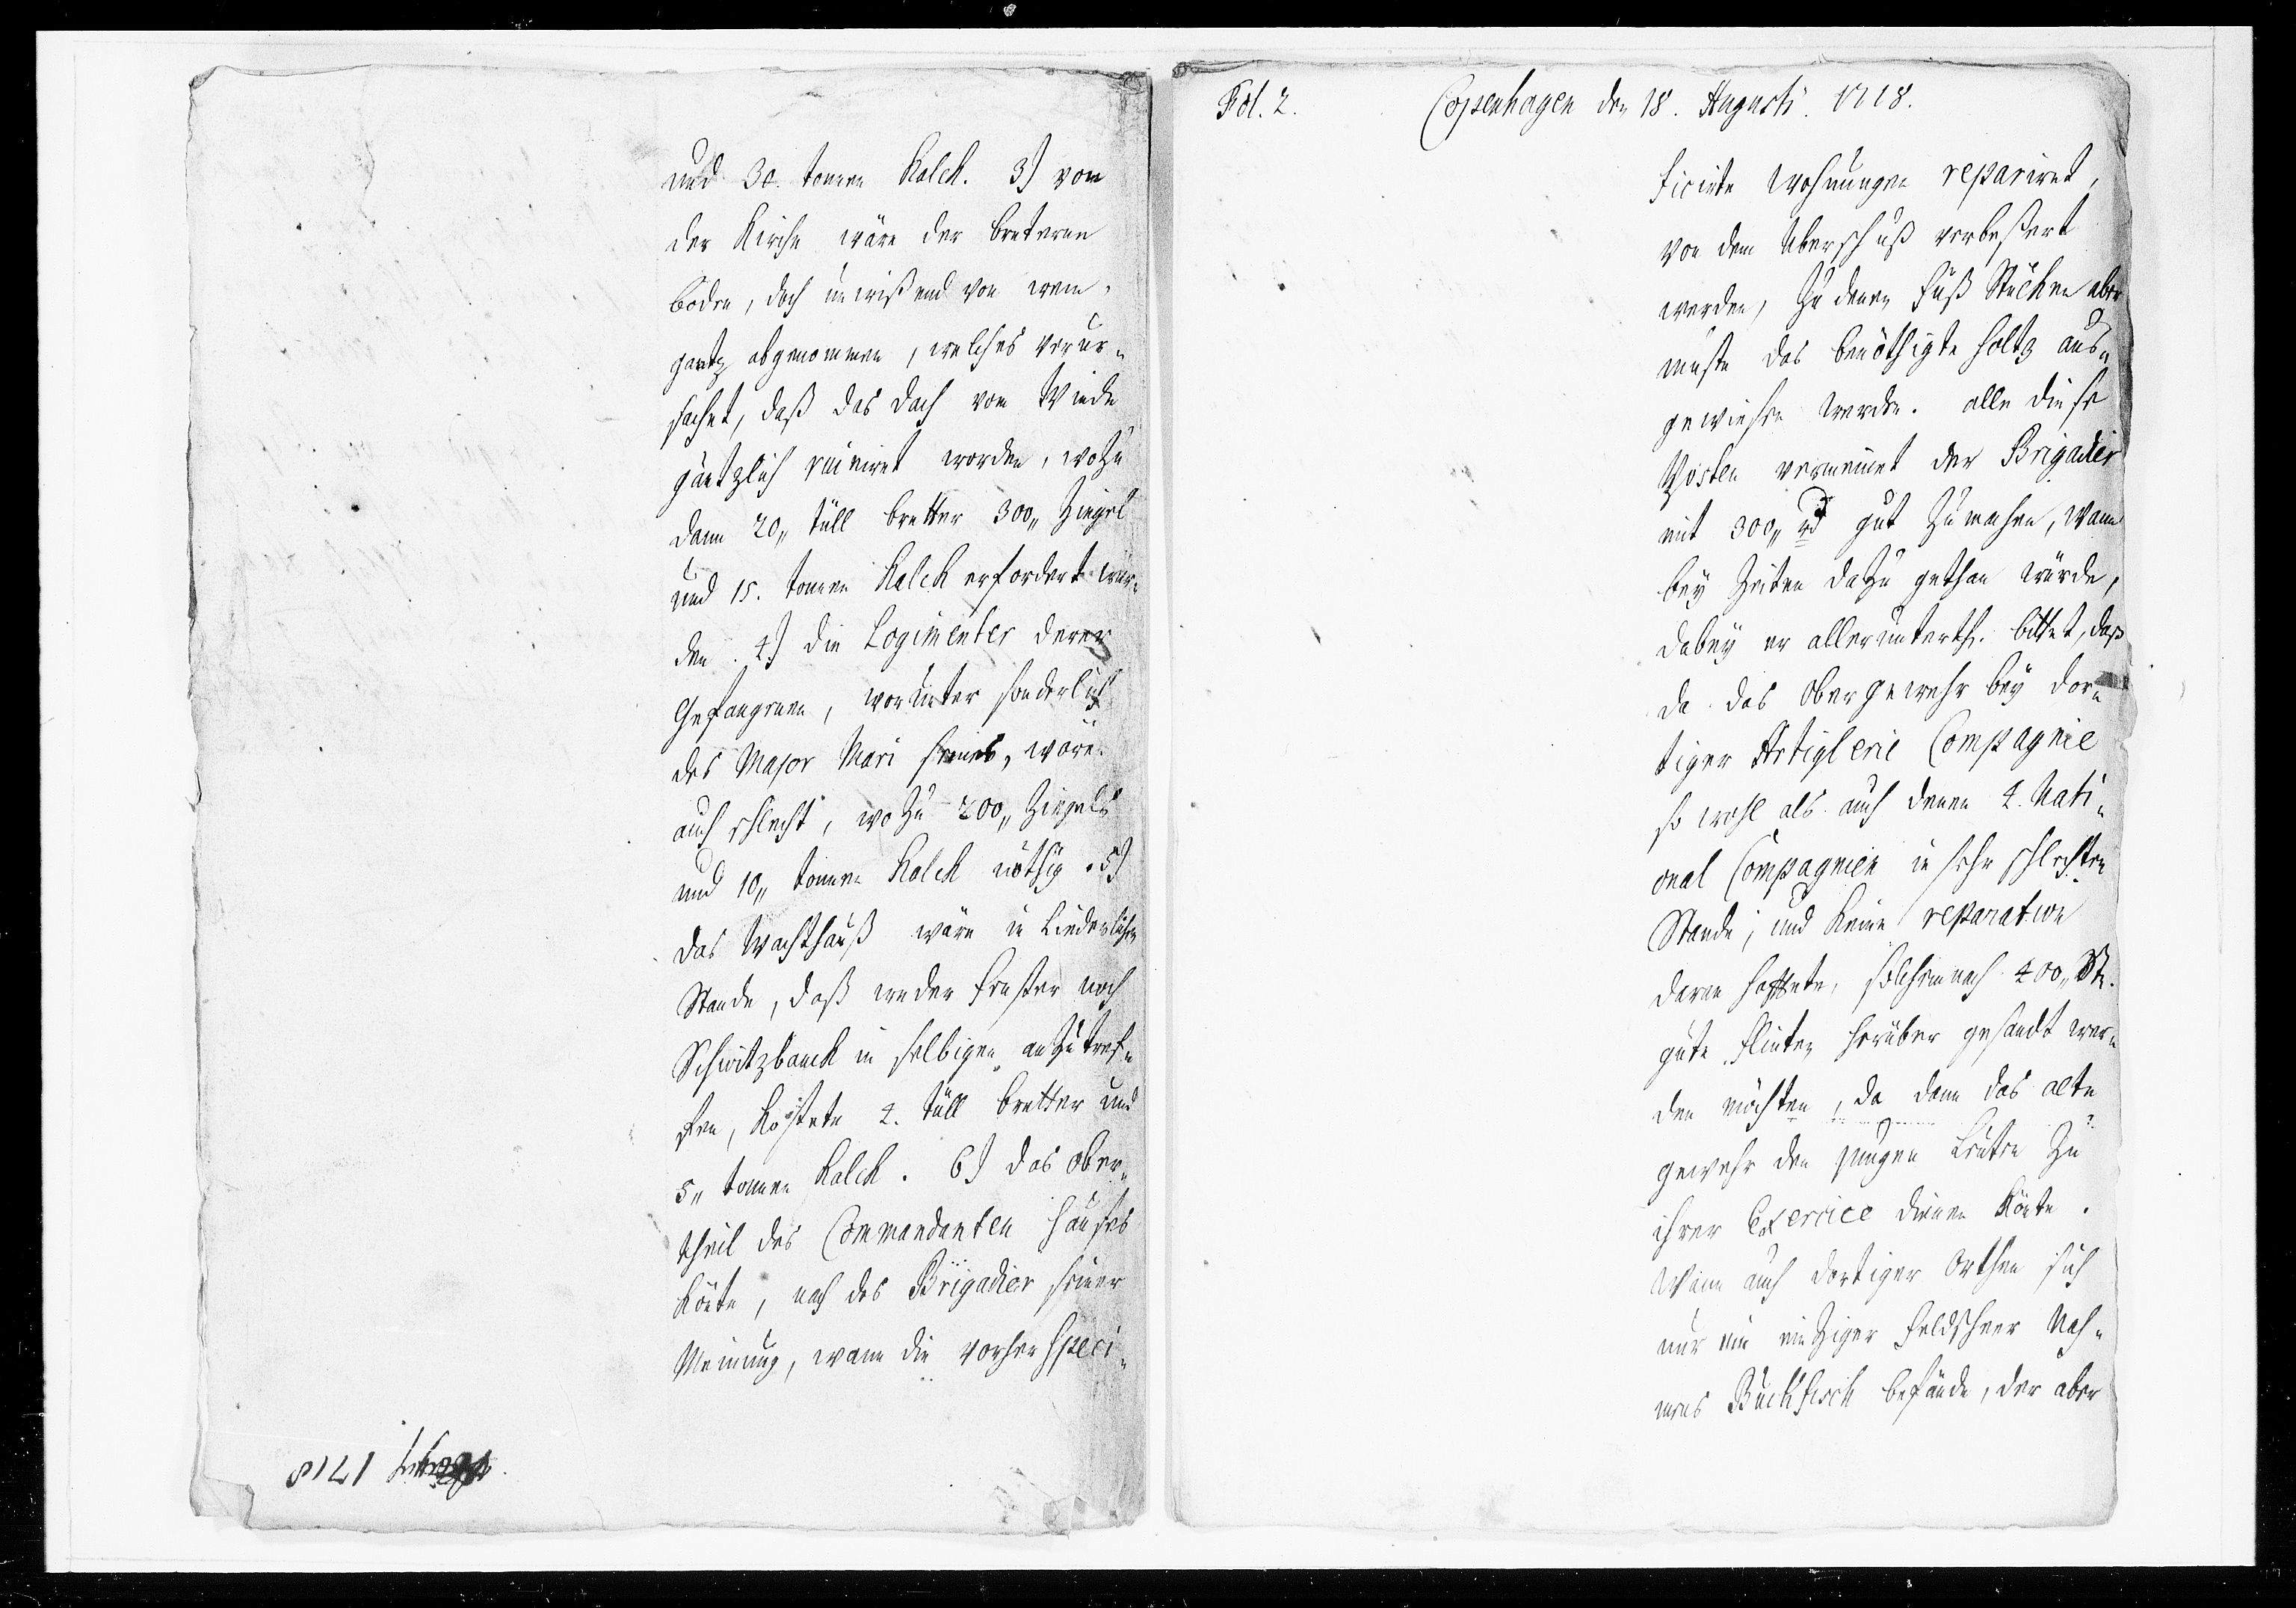 und 30. tonnen Kalck. 3) von
der Kirche wäre der breterne
boden, doch unwißend von wem,
gantz abgenommen, welches verur-
sachet, daß das dach vom Winde
gäntzlich ruiniret worden, wozu
dann 20„ tüll bretter 300„ Ziegel
und 15. tonnen Kalck erfordert wür-
den. 4) die Logimenter derer
Gefangenen, worunter sonderlich
des Major Mari seines, wäre
auch schlecht, wozu 200„ Ziegels
und 10„ tonnen Kalck nöthig. 5)
das Wachthauß wäre in Liederlichen
Stande, daß weder Fenster noch
Schwitzbanck in selbigen anzutref-
fen, Kostete 4. tüll bretter und
5„ tonnen Kalck. 6) das Ober-
theil des Commandanten Hauses
Könte, nach des Brigadier seiner
Meinung, wann die vorher speci-
1718
Fol. 2. Copenhagen den 18. Augusti. 1718.
ficirte Wohnungen repariret,
von dem Uberschuß verbeßert
werden, Zu denen Fuß Stücken aber
muste das benöthigte Holtz aus-
gewiesen werden. alle diese
Posten vermeinet der Brigadier
mit 300„ rd gut Zu machen, wann
bey Zeiten dazu gethan würde,
dabey er allerunterth. bittet, daß
da das Obergewehr bey dor-
tiger Artiglerie Compagnie
so wohl als auch denen 4. Nati-
onal Compagnien in sehr schlechten
Stande, und Keine reparation
daran haftete, solchemnach 400„ St.
gute Flinten herüber gesandt wer-
den möchten, da dann das alte
gewehr den jungen Leuten Zu
ihrer Exercice dienen Könte.
Wann auch dortiger Orthen sich
nur ein eintziger Feldscheer Nah-
mens Buckfisch befände, der aber